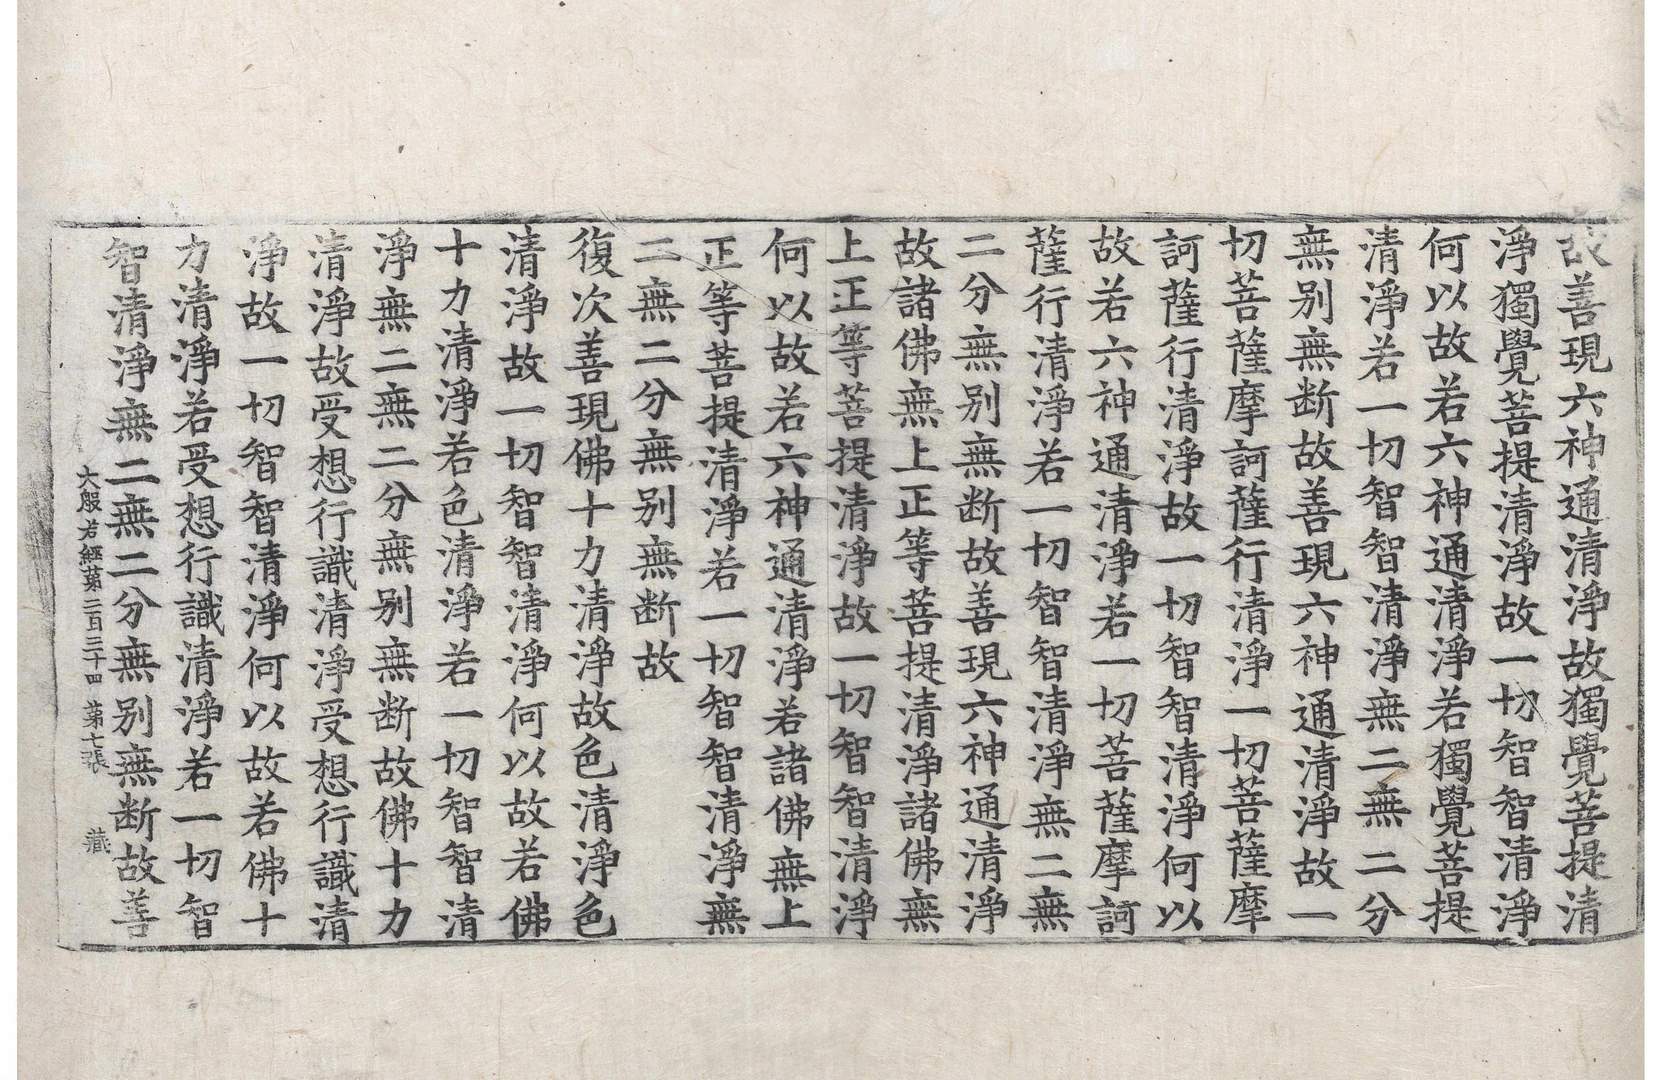 故善現六神通清淨故獨覺菩提清
淨獨覺菩提清淨故一切智智清淨
何以故若六神通清淨若獨覺菩提
清淨若一切智智清淨無二無二分
無別無断故善現六神通清淨故一
切菩薩摩訶薩行清淨一切菩薩摩
訶薩行清淨故一切智智清淨何以
故若六神通清淨若一切菩薩摩訶
薩行清淨若一切智智清淨無二無
二分無別無断故善現六神通清淨
故諸佛無上正等菩提清淨諸佛無
上正等菩提清淨故一切智智清淨
何以故若六神通清淨若諸佛無上
正等菩提清淨若一切智智清淨無
二無二分無別無断故
復次善現佛十力清淨故色清淨色
清淨故一切智智清淨何以故若佛
十力清淨若色清淨若一切智智清
淨無二無二分無別無断故佛十力
清淨故受想行識清淨受想行識清
淨故一切智智清淨何以故若佛十
力清淨若受想行識清淨若一切智
智清淨無二無二分無別無断故善
大般若經第二百三十四 第七張 藏